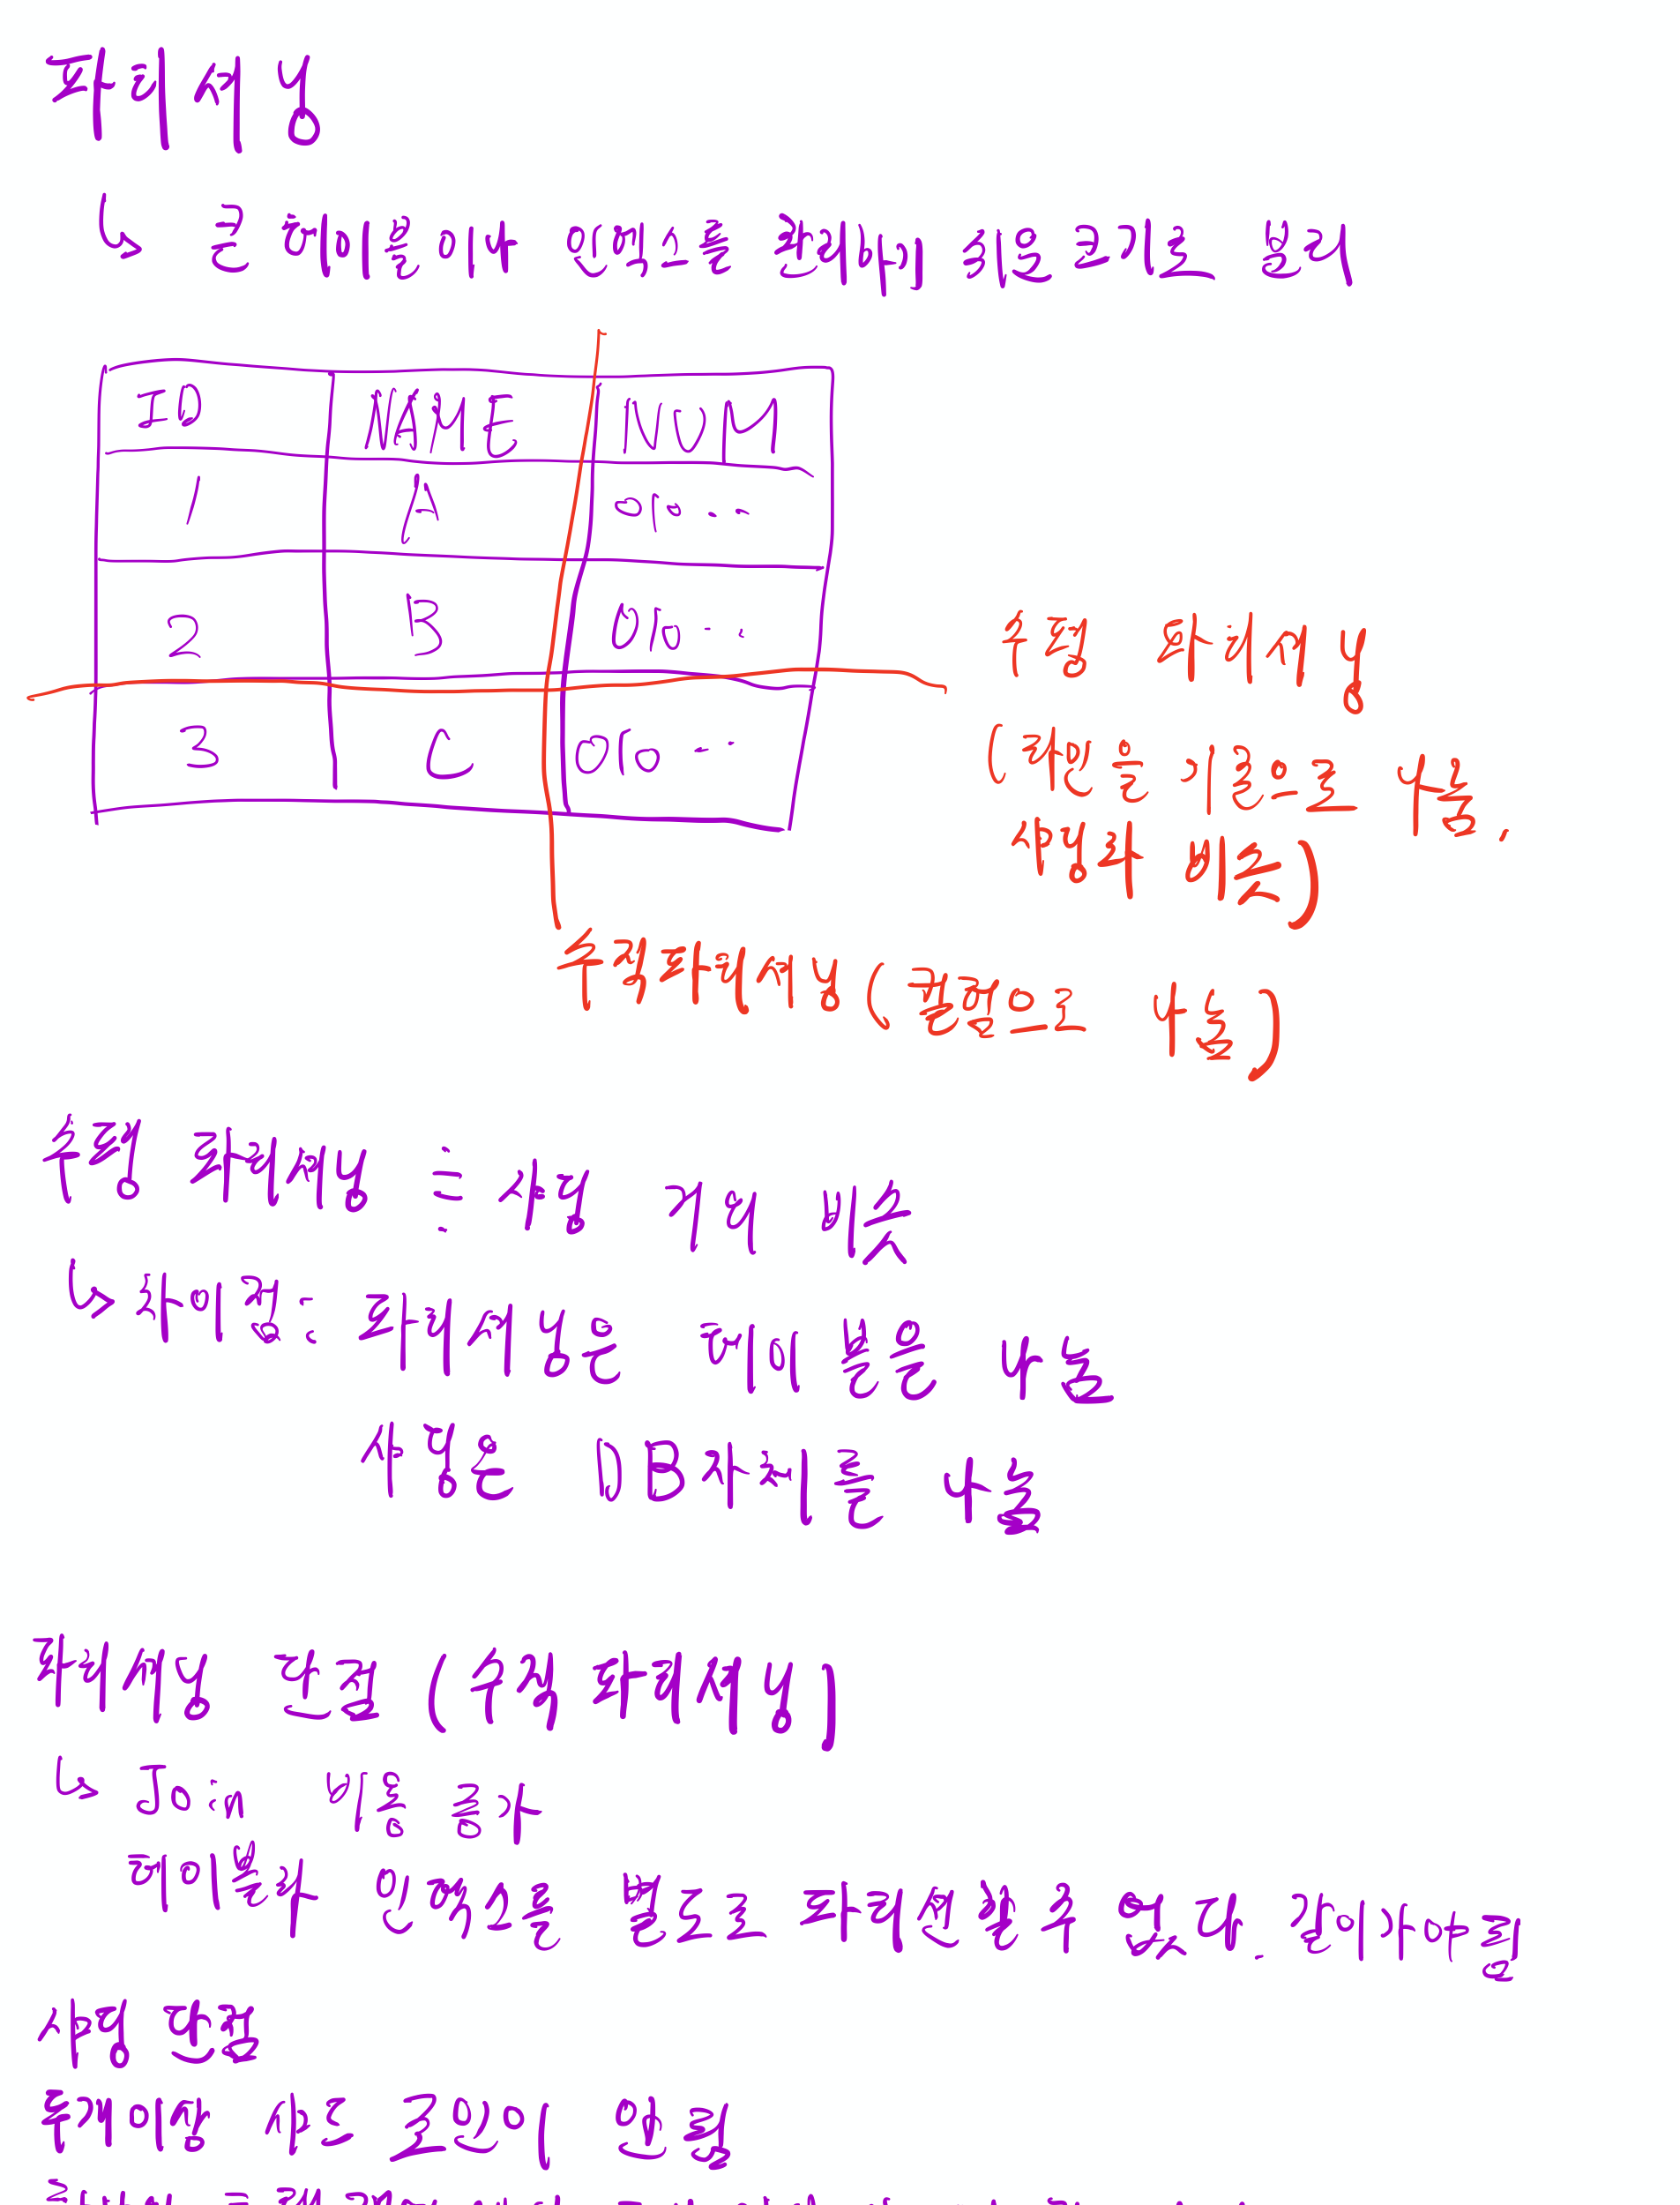 파티셔닝
↳ 큰 테이블이나 인덱스를 관리하기 쉬운 크기로 분리
ID NAME NUM
1 A 010..
2 B 010..
3 C 010..
수평 파티셔닝
(라인을 기준으로 나눔.
샤딩과 비슷)
수직파티셔닝(컬럼으로 나눔)
수평 파티셔닝 샤딩 거의 비슷
↳ 차이점: 파티셔닝은 테이블을 나눔
샤딩은 DB자체를 나눔
파티셔닝 단점 (수직 파티셔닝)
↳ Join 비용 증가
테이블과 인덱스를 별도로 파티션할 수 없다. 같이가야됨
샤딩 단점
두개이상 샤드 조인이 안됨